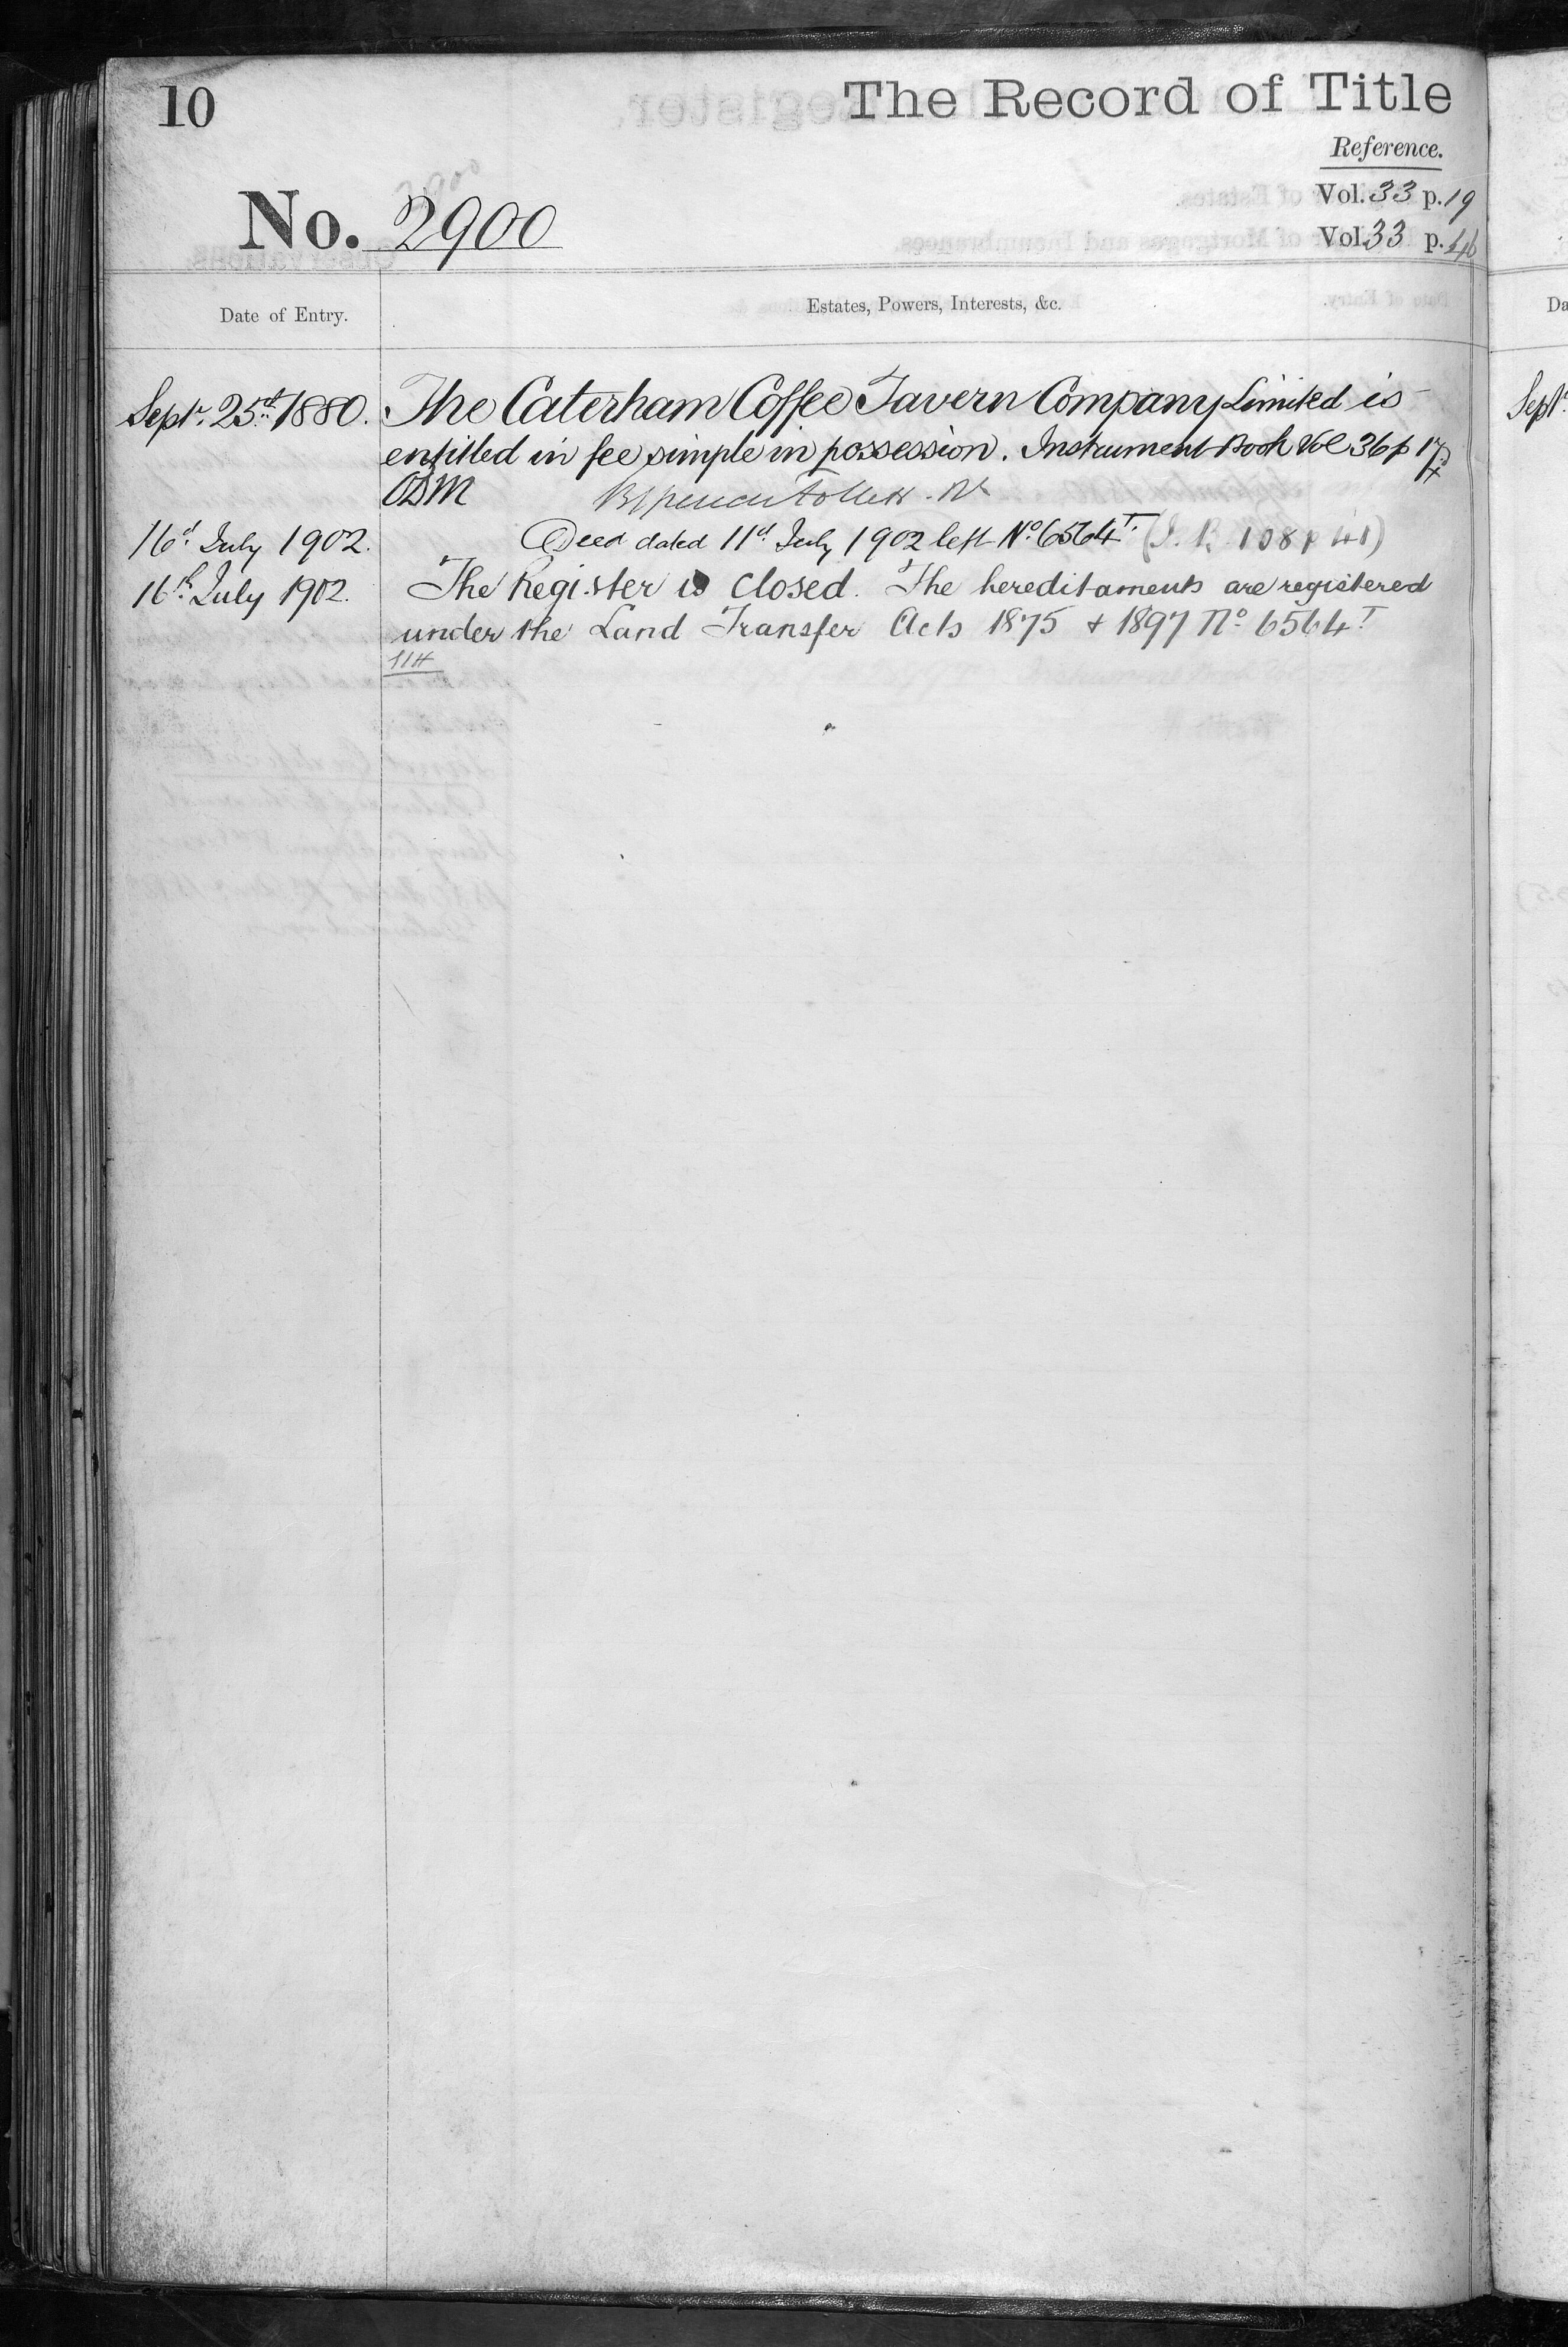 10
The Record of Title
Reference.
Vol. 33 p. 19
No. 2900
Vol. 33 p. 46
Date of Entry.
Estates, Powers, Interests, &c.
Da
Septr. 25th 1880. The Caterham Coffee Tavern Company Limited is
Septr
entitled in fee simple in possession. Instrument Book Vol 36 p 17
16th July 1902. Deed dated 11th July 1902 left No. 6564T (I. B. 108 p 41)
16th July 1902. The Register is closed. The hereditaments are registered
under the Land Transfer Acts 1875 & 1897 No 6564T